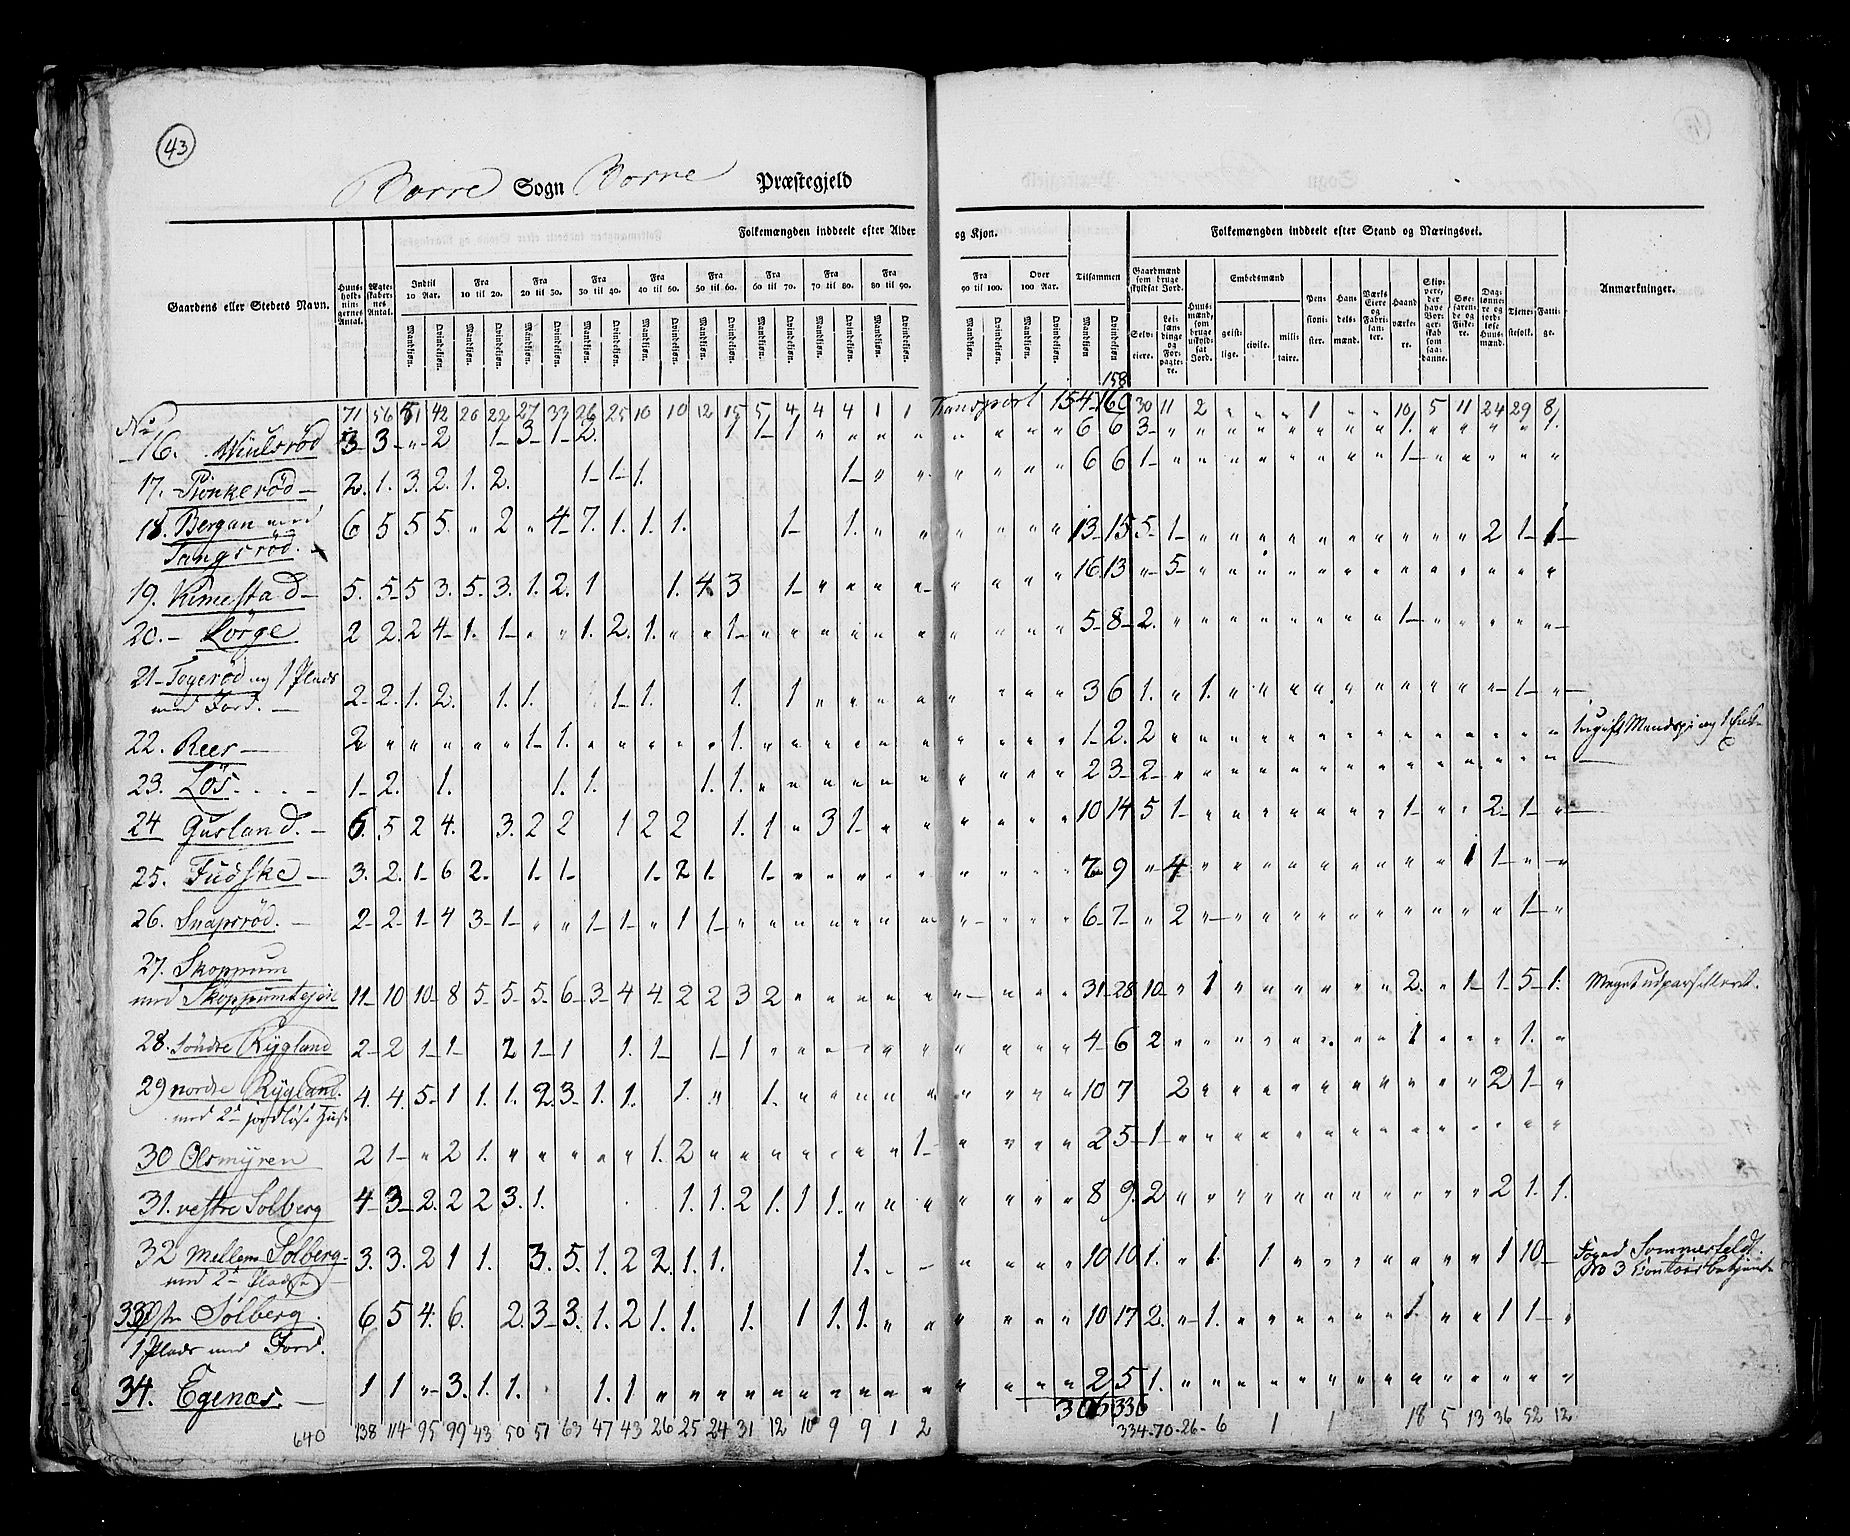 43
Borre Sogn Borre Præstegjeld
Folkemængden inddeelt efter Alder og Kjøn. Folkemængden inddeelt efter Stand og Næringsvei.
Gaardens eller Stedets Navn. Huusholdningernes Antal. Ægteskabernes Antal. Indtil 10 Aar. Fra 10 til 20. Fra 20 til 30. Fra 30 til 40. Fra 40 til 50. Fra 50 til 60. Fra 60 til 70. Fra 70 til 80. Fra 80 til 90. Fra 90 til 100. Over 100 Aar. Tilsammen Gaardmænd som bruge skyldsat Jord. Huusmænd, som bruge uskyldsat Jord. Embedsmænd Pensionister. Handelsmænd. Værks Eiere og Fabrikanter. Haandværkere. Søefarende og Fiskere. Tjenestefolk. Fattige. Anmærkninger.
Mandkjøn. Qvindekjøn. Selveiere. Leilændinge og Forpagtere. geistlige. civile. militaire.
158
71 56 81 42 20 22 27 33 26 25 10 10 12 15 5 4 4 4 1 1 Transport 154 160 30 11 2 " " " 1 " " 10 5 11 24 29 8
16. Wiulsrød 3 3 " 2 1 3 1 2 1 1 1 6 6 3
17. Rønkerød 2. 1. 3. 2. 1. 2. 1 1 1. 1 6 6 1 1
18. Bergan med
Tangsrød. 6 5 5 5. " 2 " 4 7. 1. 1. 1. 1 1. 13 15 5 1 2 1 1
19. Kimestad 5. 5 5 3. 5. 3. 1. 2. 1 1. 4 3 1 16 13 " 5
20. Lørge 2 2. 2 4 1. 1 " " 1. 2. 1. " " 1 5 8 2. 1
21 Togerød og 1 Plads
med Jord. 2 2. 1. 2. 1. 1. 1 1. 1. 1 3 6 1. " 1. 1
22. Reer 2 1 1. 1. 1 2. 2
23. Løs 1 2. 1. 1. 1. 1. 1. 2 3 2
24 Gusland. 6. 5 2 4. 3. 2 2 1 2 2 1. 1. " 3 1 10 14 5 1 1 2. 1
25. Fudske 3. 2. 1 6 2. 1. 1 1. 2 1. 1 7 9 " 4 1 1
26. Snapsrød. 2 2 1 4 3 1 " " 1 1 " 1 1 6 7 " 2 1
27. Skoppum
med Skoppumtejeie 11 10 10 8 5. 5. 5. 6 3 4 4. 2 2 3 2 31 28 10 " 1 2. " 1 1 5 1. Meget udparselleret.
28. Søndre Rygland 2 2 1 1 2 1 1 1. 1 1 1 4 6 2 1 1.
29 nordre Rygland.
med 2de jordløse Huse 4. 4. 5 1 1. 1. 2. 3 1. 1. 1. " 1. 10 7 2 2 1
30 Olsmyren 2 1 " 2 1. 1. 2 1 2 5 1
31. vestre Solberg 4 3 2. 2 2 3. 1. 1. 1. 2 1. 1 1. 8 9. 2 2 1. 1.
32 Mellem Solberg
med 2de Pladse 3. 3. 2 1 1. 3. 5. 1. 2 2. 1. 1. 1. 10 10 1. " 1. 1 1 10 Foged Sommerfeldt.
3 Contoirbetjente
33 Østre Solberg
1 Plads med Jord. 6 5 4. 6. 2. 3 3. 1. 2 1. 1. 1. 1 1. 1. 10 17 2. 1. 1. 1 1
34. Egenæs. 1 1 " 3. 1. 1. 1. 1 2 5 1.
306 336
640 138 114 95 99 43 50 51 63 47 43 26 25 24 31 12 10 9 9 1 2 334 70 26 6 1 1 18 5 13 36 52 12